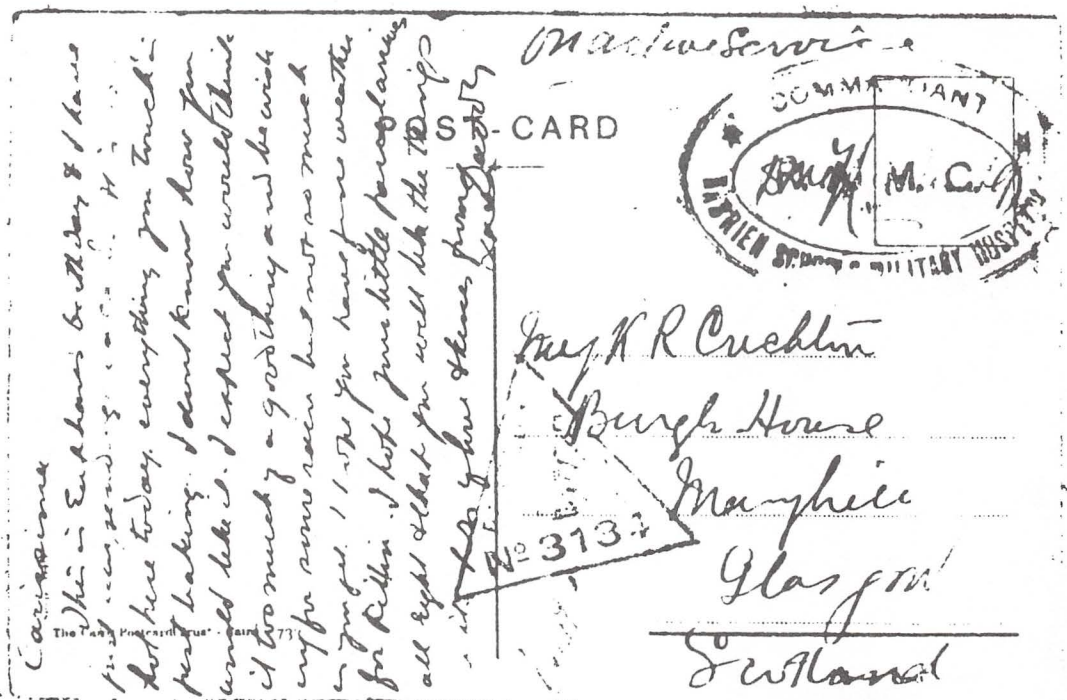 Carissima
This is birthday & I have
just sending a
hot here today, everything you touch is
just baking. I dont know how you
would like it. I expect you would think
it too much of a good thing and be wish
ing for some rain but not so much
I hope you have fine weather
for Killin. I hope your little parcel arrives
all right & that you will like the things
in it. of love & kisses from Daddy
The Cairo Postcard Trust - Cairo 73
On Active Service
POST-CARD
COMMANDANT
SCHOOLS MILITARY HOSPITAL
K R
Burgh House
Maryhill
Glasgow
Scotland
No 3134